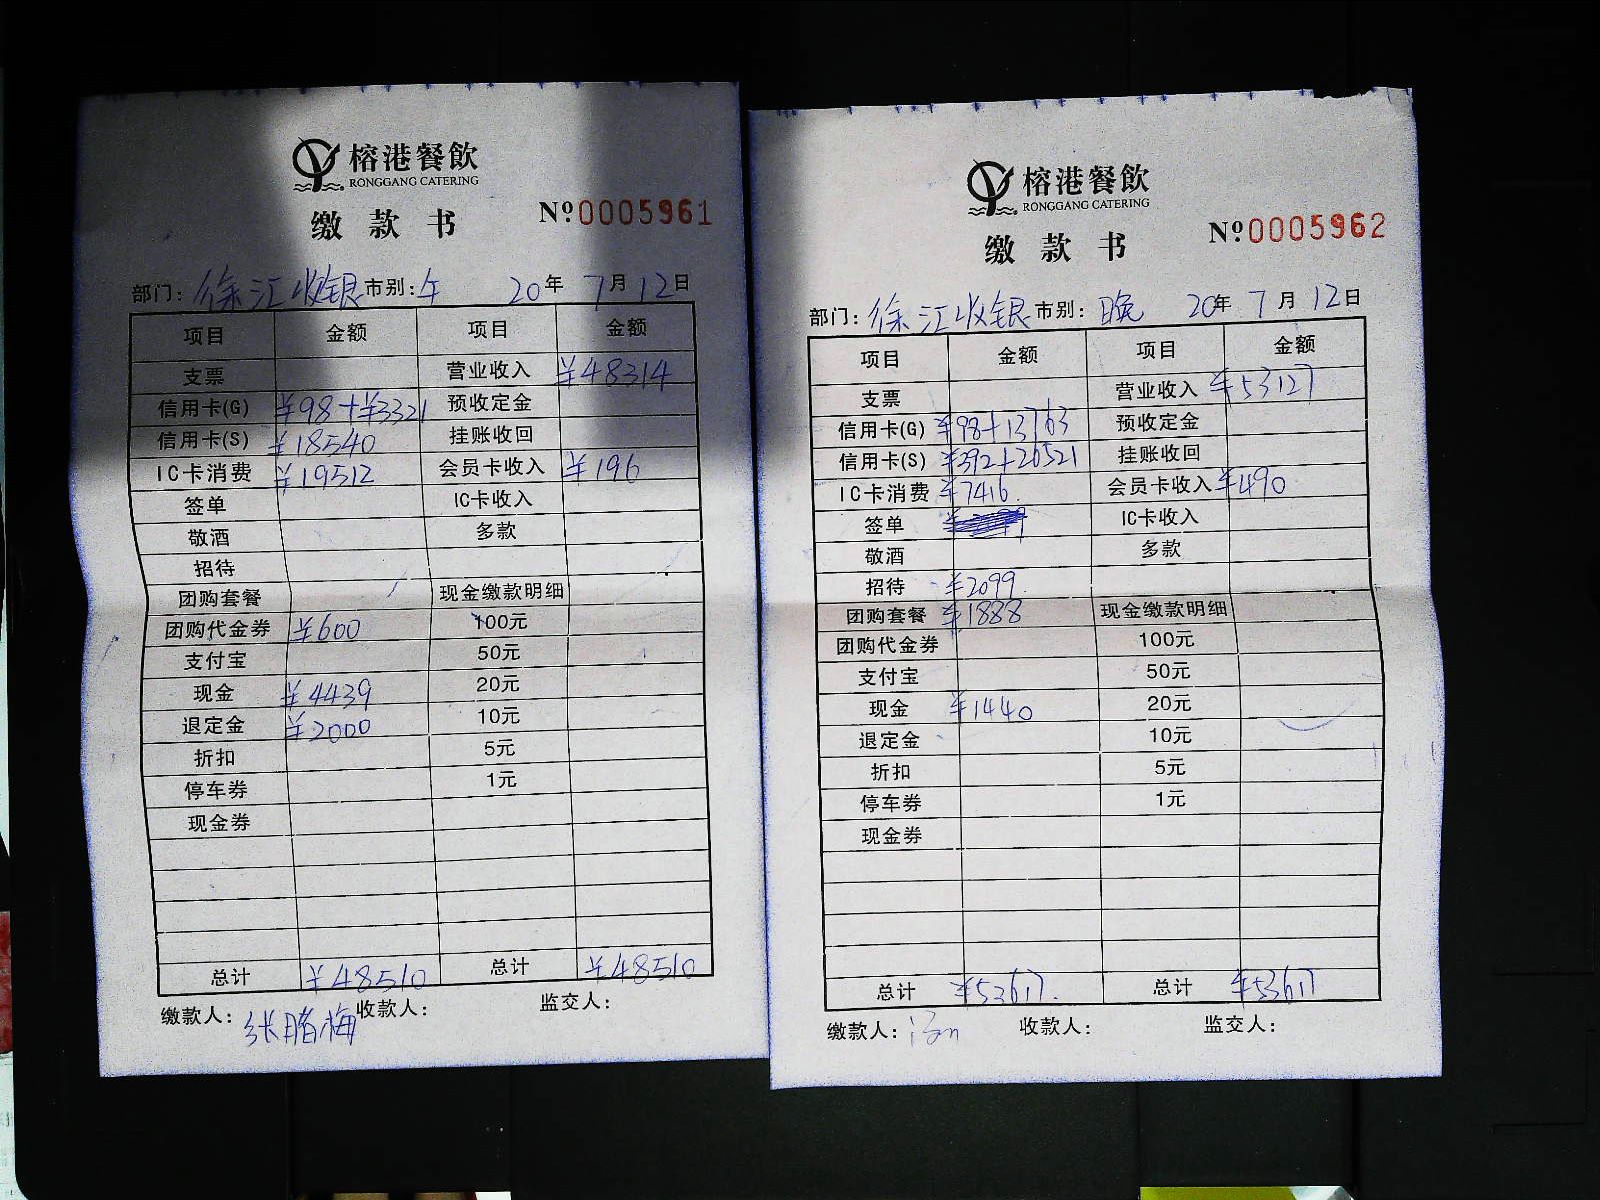 榕港餐飲
RONGGANG CATERING
缴款书 Nº0005961
部门: 徐江收银 市别: 午 20年 7月 12日
项目 金额 项目 金额
支票 营业收入 ¥48314
信用卡(G) ¥98+¥3321 预收定金
信用卡(S) ¥18540 挂账收回
IC卡消费 ¥19512 会员卡收入 ¥196
签单 IC卡收入
敬酒 多款
招待
团购套餐 现金缴款明细
团购代金券 ¥600 100元
支付宝 50元
现金 ¥4439 20元
退定金 ¥2000 10元
折扣 5元
停车券 1元
现金券
总计 ¥48510 总计 ¥48510
缴款人: 收款人: 监交人:
榕港餐飲
RONGGANG CATERING
缴款书 Nº0005962
部门: 徐江收银 市别: 晚 20年 7月 12日
项目 金额 项目 金额
支票 营业收入 ¥53127
信用卡(G) ¥98+13763 预收定金
信用卡(S) ¥392+26521 挂账收回
IC卡消费 ¥7416 会员卡收入 ¥490
签单 IC卡收入
敬酒 多款
招待 ¥2099
团购套餐 ¥1888 现金缴款明细
团购代金券 100元
支付宝 50元
现金 ¥1440 20元
退定金 10元
折扣 5元
停车券 1元
现金券
总计 ¥53617. 总计 ¥53617
缴款人: 收款人: 监交人: